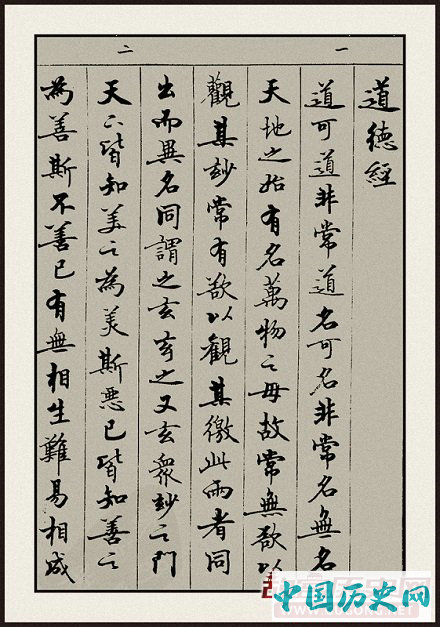 一
道德經
道可道非常道名可名非常名無名
天地之始有名萬物之母故常無欲以
觀其玅常有欲以觀其徼此兩者同
二
出而異名同謂之玄玄之又玄眾玅之門
天下皆知美之為美斯惡已皆知善之
為善斯不善已有無相生難易相成
中国历史网